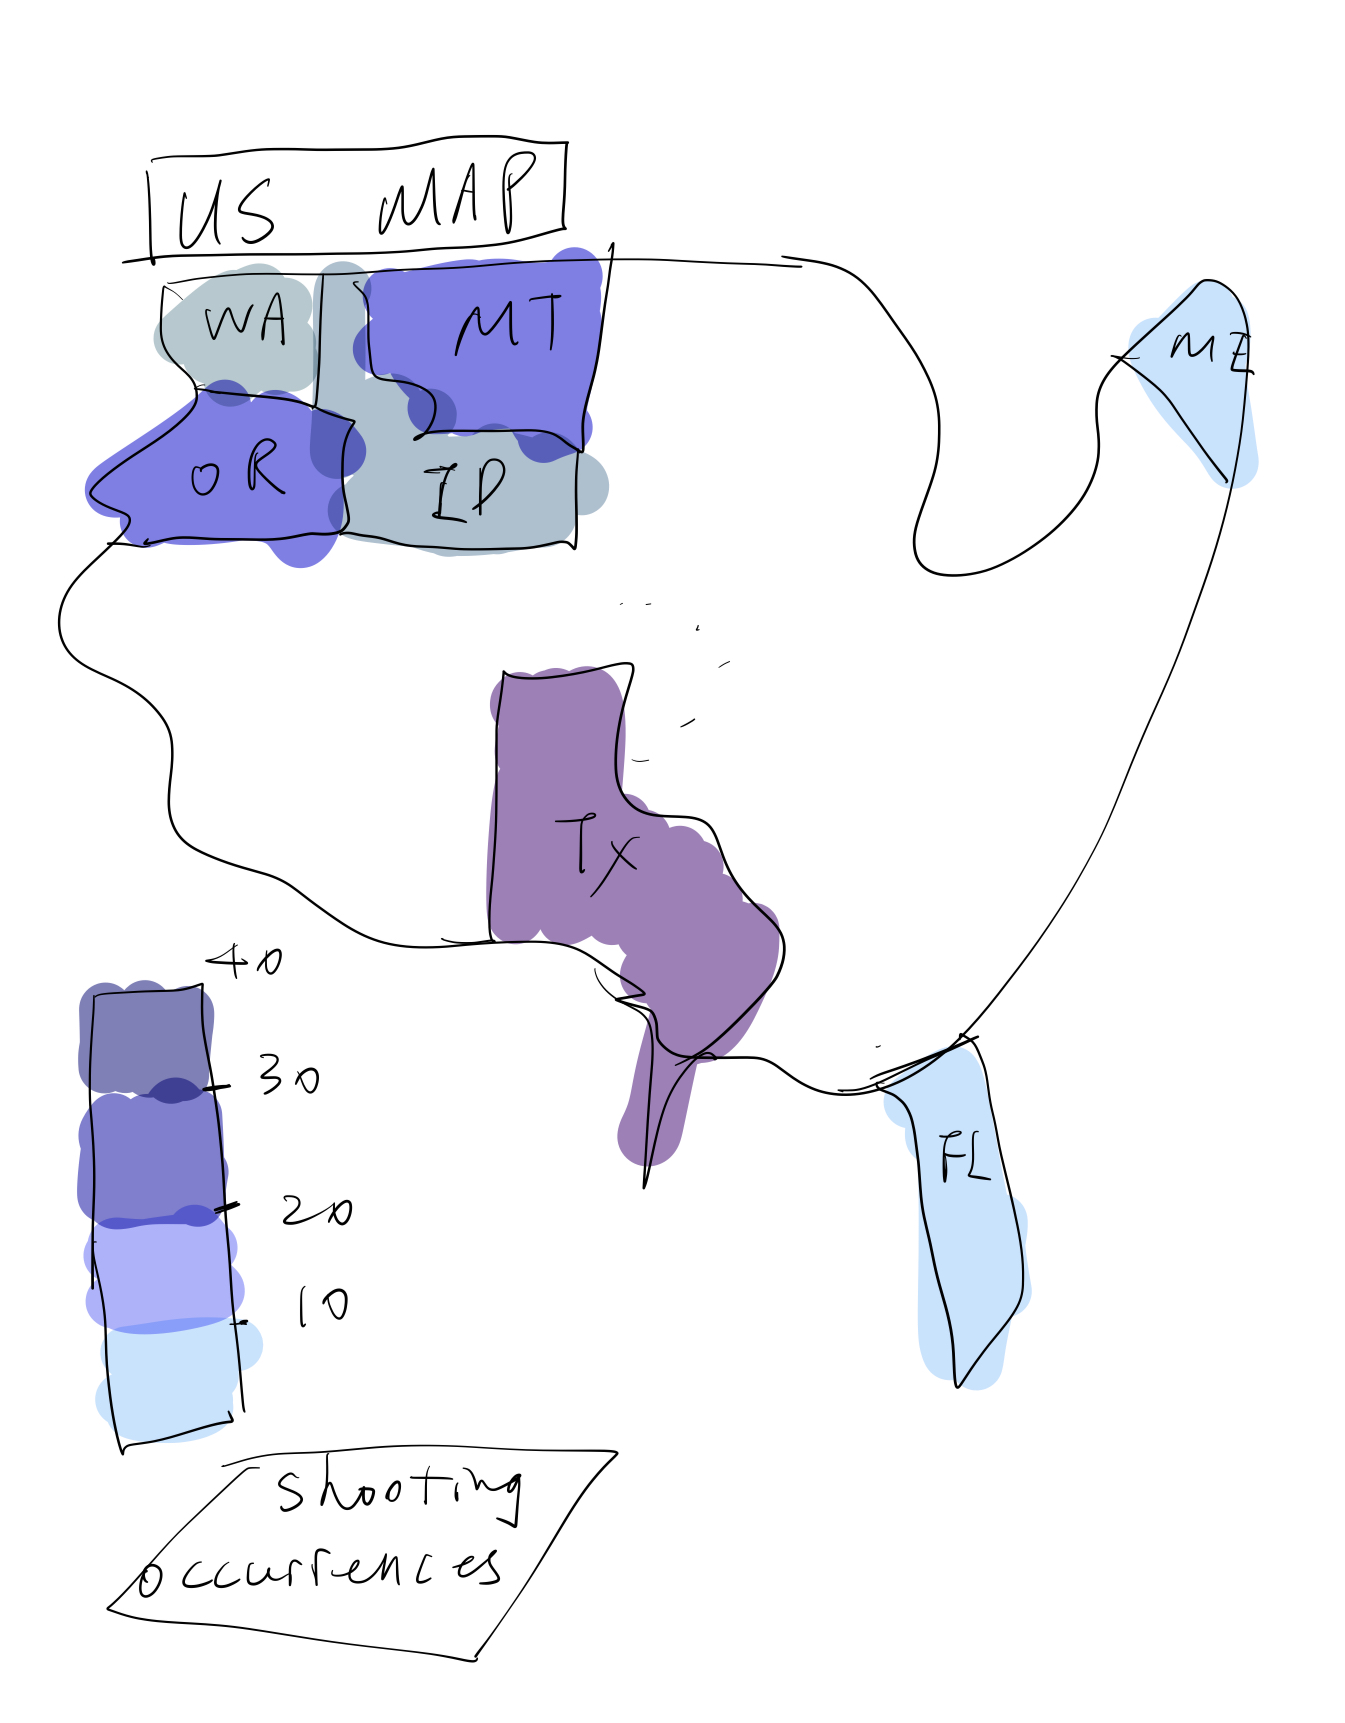 US MAP
WA
MT
ME
OR
ID
TX
40
30
FL
20
10
shooting
occurrences